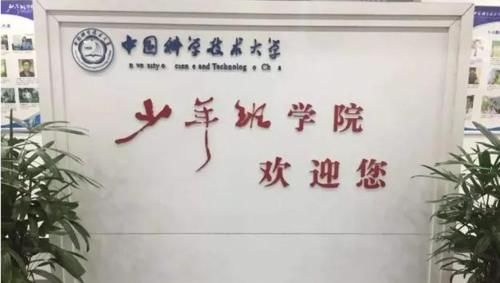 中国科学技术大学
n vers ty o c en e and Technolog o Ch a
少年班学院
欢迎您